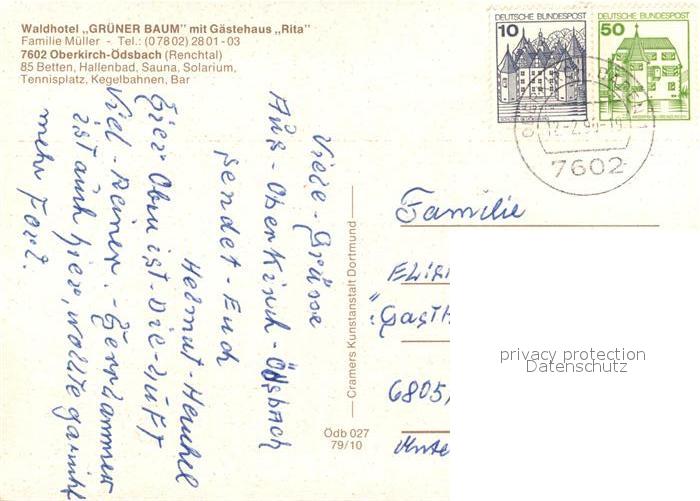 Waldhotel „GRÜNER BAUM" mit Gästehaus „Rita"
Familie Müller - Tel.: (0 78 02) 28 01 - 03
7602 Oberkirch-Ödsbach (Renchtal)
85 Betten, Hallenbad, Sauna, Solarium,
Tennisplatz, Kegelbahnen, Bar
Viele - Grüsse
Aus - Oberkirch - Ödsbach
sendet - Euch
Helmut - Henkel
Hier Oben ist - Die - Luft
Viel - Reiner. -
ist auch hier, wollte garnicht
mehr Fort.
Cramers Kunstanstalt Dortmund
Ödb 027
79/10
DEUTSCHE BUNDESPOST
10
DEUTSCHE BUNDESPOST
50
7602
Familie
6805,
privacy protection
Datenschutz